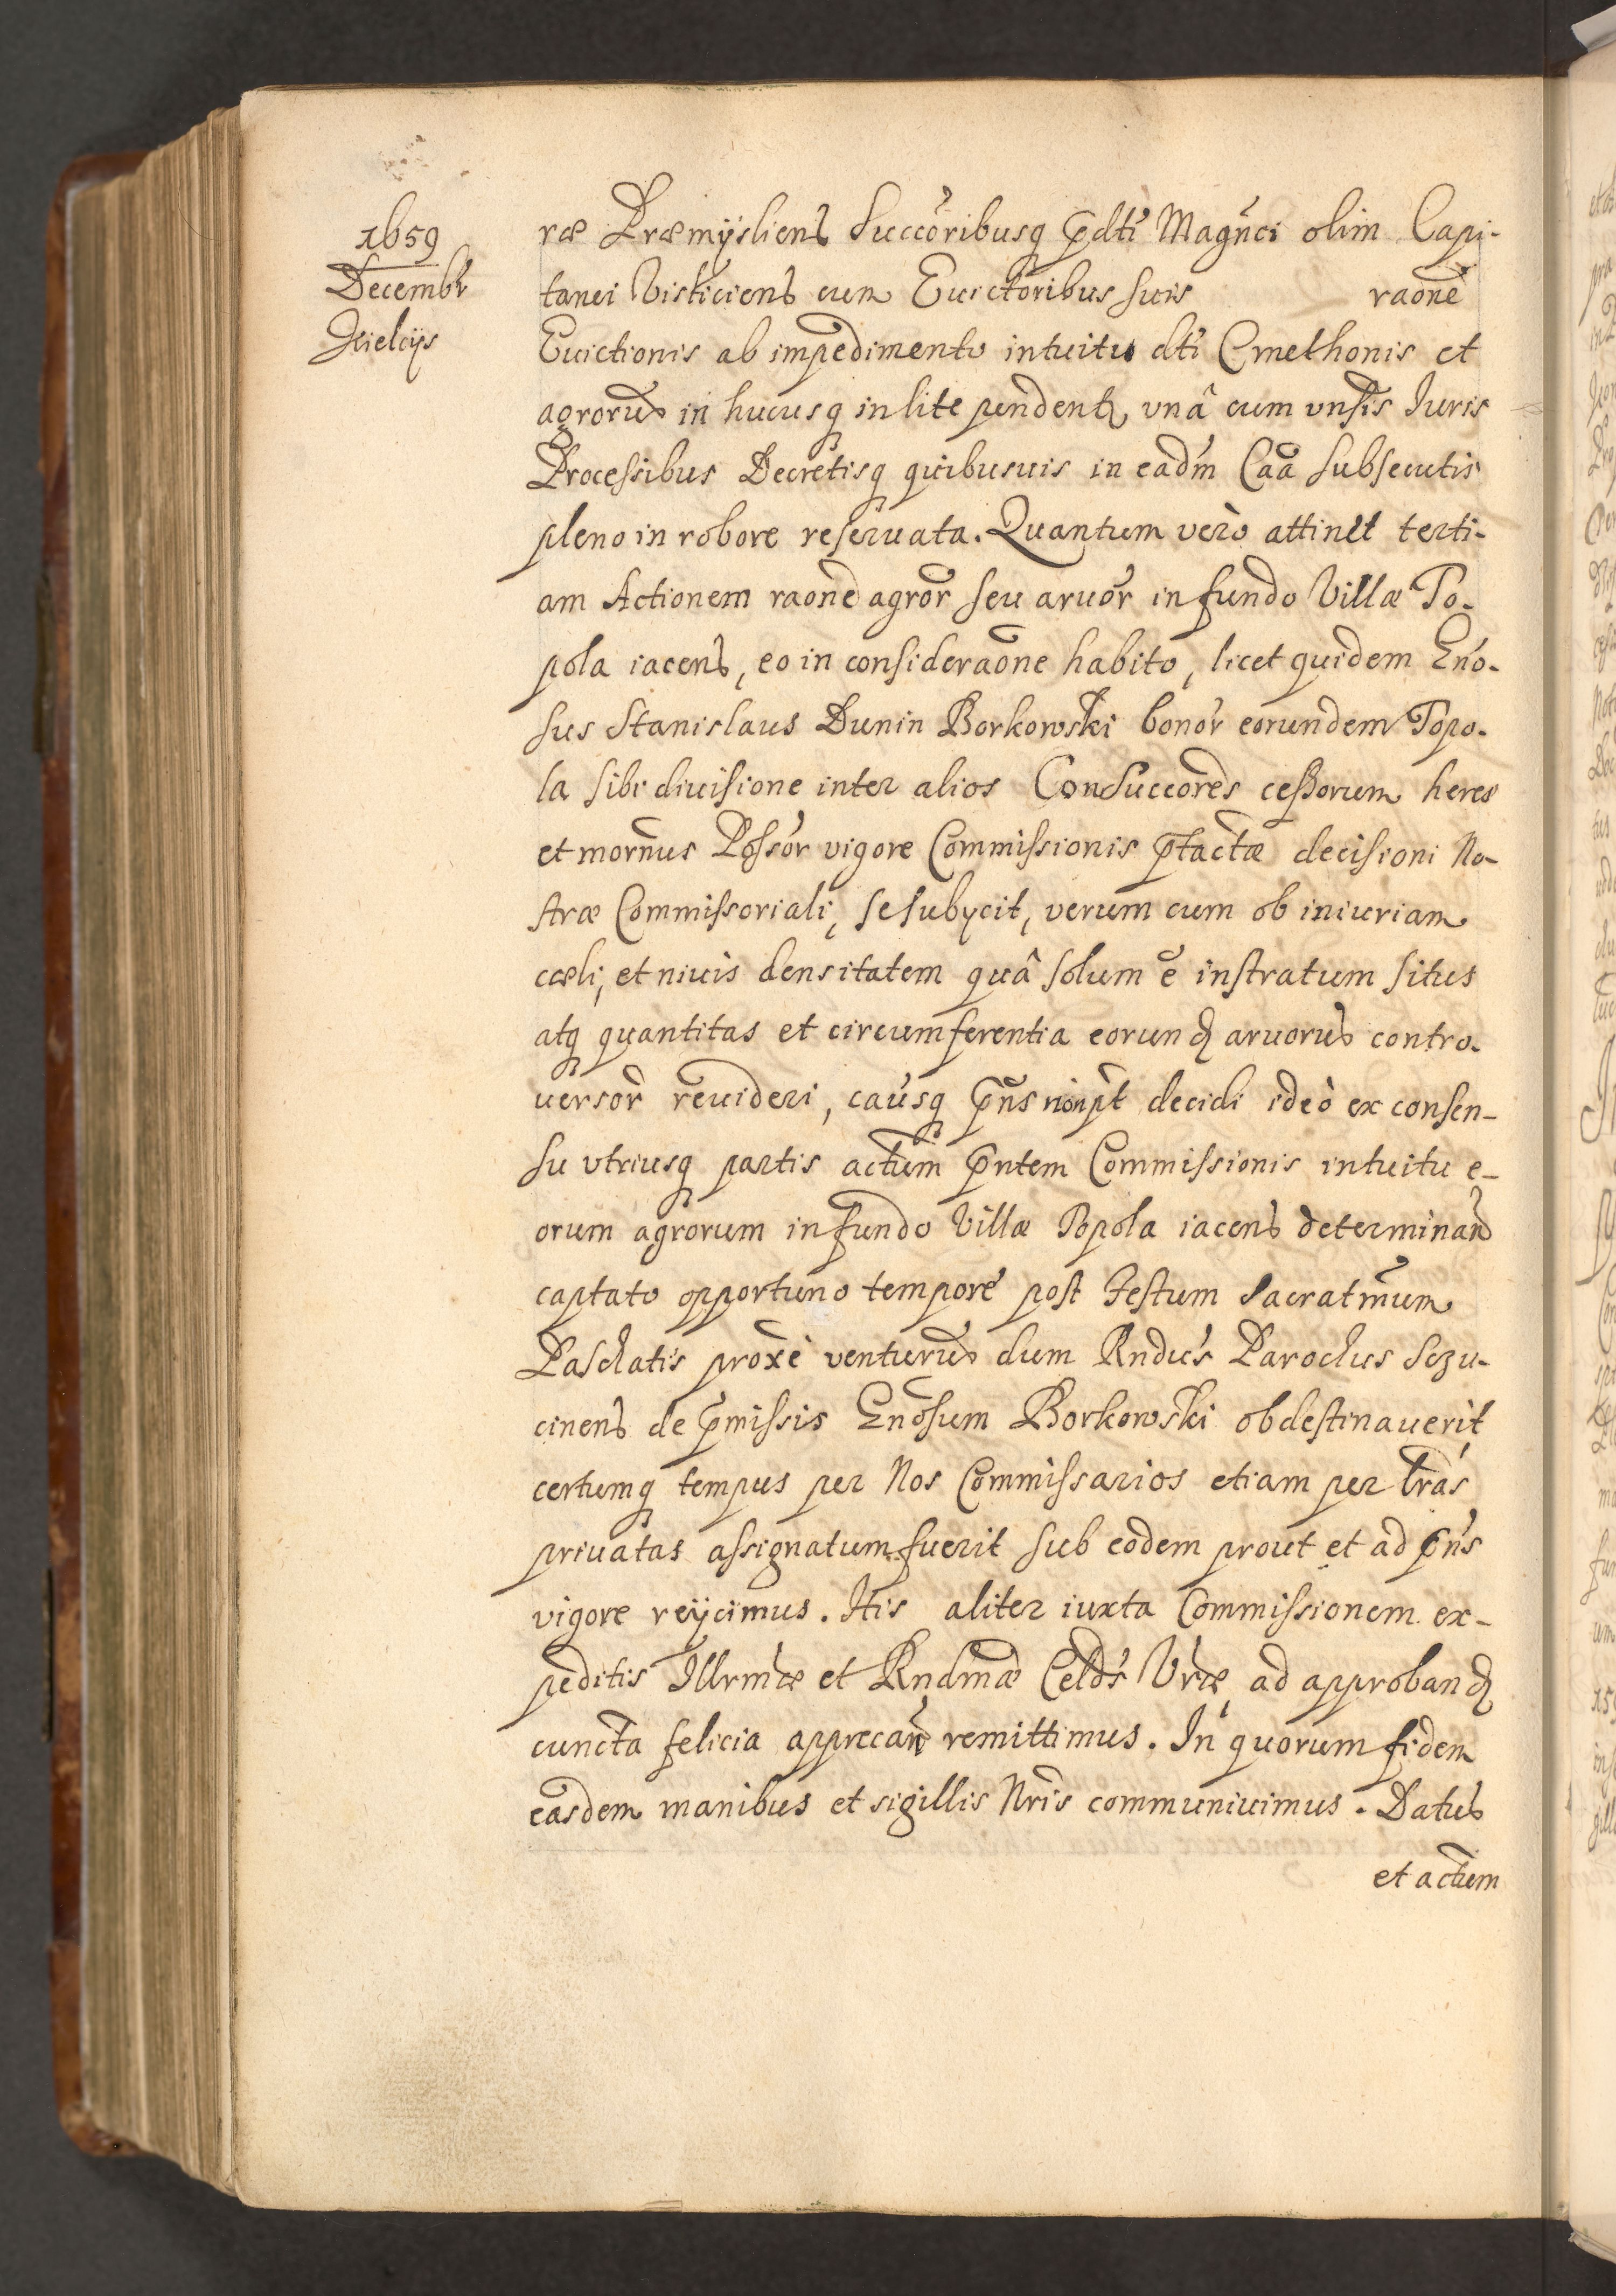 1659
Decembr
Kielcijs
ræ Præmijsliens Succoribusq pdti Magnci olim Capi-
tanei Visliciens cum Euictoribus suis raone
Euictionis ab impedimento intuitu dti Cmethonis et
agrorum in hucusq in lite pendent unâ cum vnsis Iuris
Processibus Decretisq quibusuis in eadm Caa subsecutis
pleno in robore reseruata. Quantum verò attinet terti-
am Actionem raone agror seu aruor in fundo Villæ To-
pola iacens, eo in consideraone habito, licet quidem Gno-
sus Stanislaus Dunin Borkowski bonor eorundem Topo-
la sibi diuisione inter alios Consuccores cessorum heres
et mornus Possor vigore Commissionis ptactæ decisioni No-
stræ Commissoriali, se subycit, verum cum ob iniuriam
cæli, et niuis densitatem quâ solum e instratum situs
atq quantitas et circumferentia eorund aruorum contro-
uersor reuideri, causq pns non pt decidi ideò ex consen-
su vtriusq partis actum pntem Commissionis intuitu e-
orum agrorum in fundo Villæ Topola iacens determinand
captato opportuno tempore post Festum Sacratmum
Paschatis proxè venturum dum Rndus Parochus Sczu-
cinens de pmissis Gnosum Borkowski obdestinauerit
certumq tempus per Nos Commissarios etiam per lras
priuatas assignatum fuerit sub eodem prout et ad pns
vigore reijcimus. Itis aliter iuxta Commissionem ex-
peditis Illrmæ et Rndmæ Celds Vræ ad approband
cuncta felicia apprecan remittimus. In quorum fidem
easdem manibus et sigillis Nris communiuimus. Datum
et actum